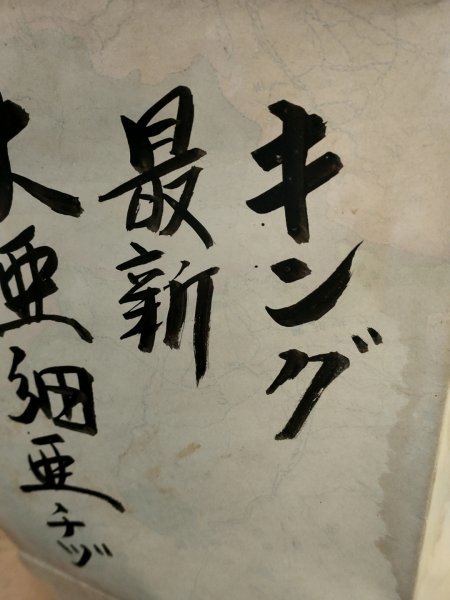 キング
最新
大亜細亜チヅ